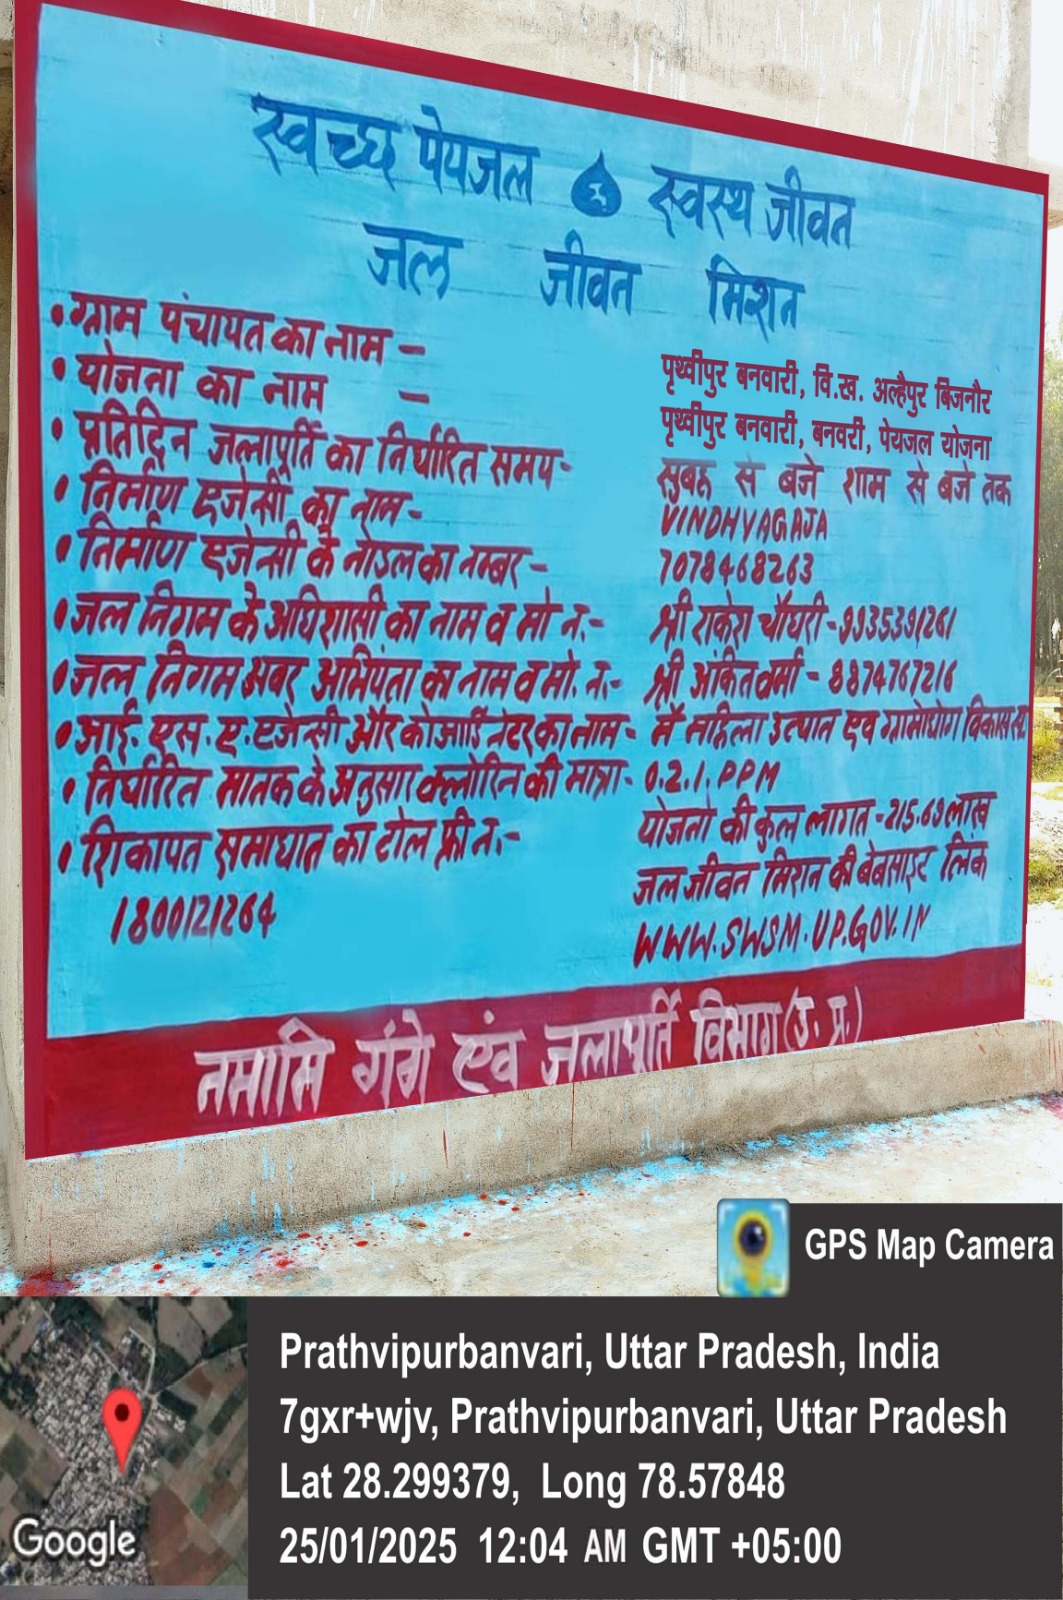 स्वच्छ पेयजल स्वस्थ जीवन
जल जीवन मिशन
• ग्राम पंचायत का नाम – पृथ्वीपुर बनवारी, वि.ख. अल्हैपुर बिजनौर
• योजना का नाम – पृथ्वीपुर बनवारी, बनवरी, पेयजल योजना
• प्रतिदिन जलापूर्ति का निर्धारित समय- सुबह से बजे शाम से बजे तक
• निर्माण एजेंसी का नाम- VINDHYAGAJA
• निर्माण एजेन्सी के नोडल का नम्बर – 7078468263
• जल निगम के अधिशासी का नाम व मो न.- श्री राकेश चौधरी-9935391261
• जल निगम अवर अभियंता का नाम व मो. न.- श्री अंकित वर्मा - 8874767216
• आई. एस. ए. एजेन्सी और कोआर्डिनेटर का नाम- मै महिला उत्थान एव ग्रामोद्योग विकास स.
• निर्धारित मानक के अनुसार क्लोरिन की मात्रा- 0.2.1. PPM
• शिकायत समाधान का टोल फ्री न.- योजना की कुल लागत -215.69 लाख
1800121264 जल जीवन मिशन की बेबसाइट लिंक
WWW.SWSM.UP.GOV.IN
नमामि गंगे एंव जलापूर्ति विभाग (उ. प्र.)
GPS Map Camera
Prathvipurbanvari, Uttar Pradesh, India
7gxr+wjv, Prathvipurbanvari, Uttar Pradesh
Lat 28.299379, Long 78.57848
25/01/2025 12:04 AM GMT +05:00
Google